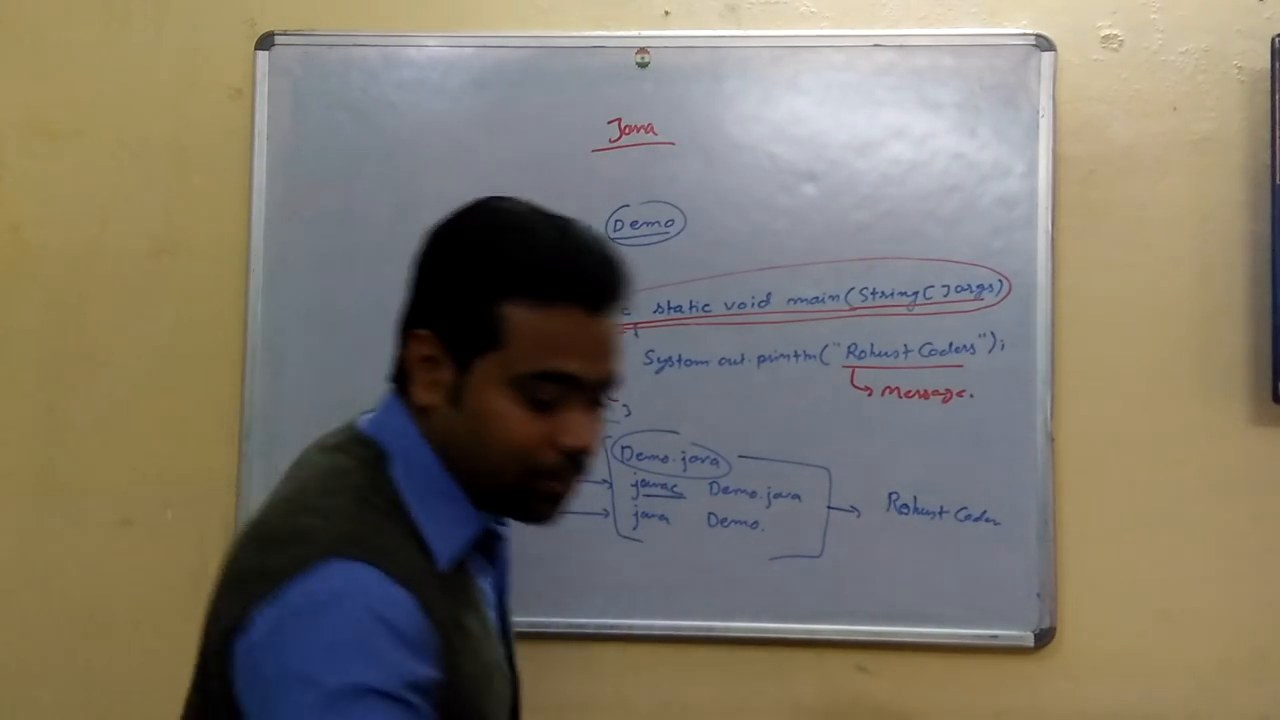 Java
Demo
c static void main(String[]args)
{
System.out.println("Robust Coders");
Message.
}
Demo.java
javac Demo.java
java Demo.
Robust Coder